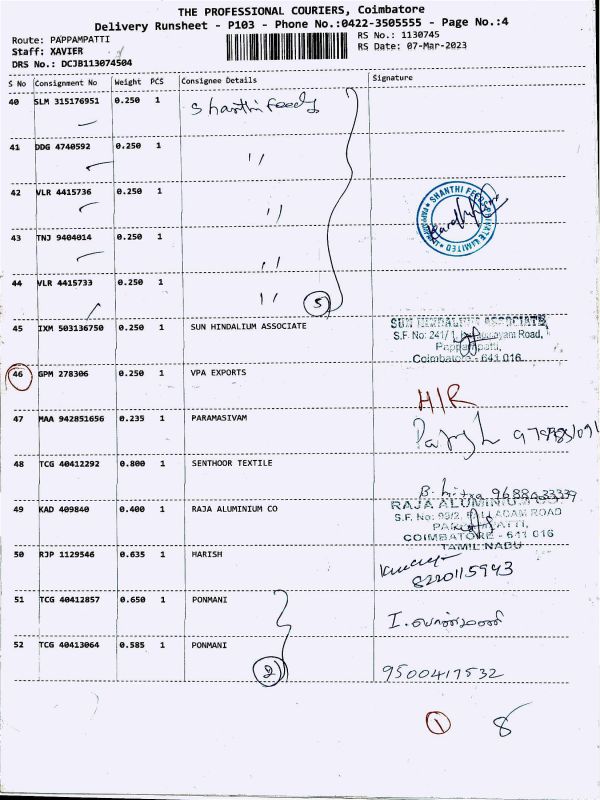 THE PROFESSIONAL COURIERS, Coimbatore
Delivery Runsheet - P103 - Phone No.:0422-3505555 - Page No.:4
Route: PAPPAMPATTI
RS No.: 1130745
Staff: XAVIER
RS Date: 07-Mar-2023
DRS No.: DCJB113074504
S No Consignment No Weight PCS Consignee Details Signature
40 SLM 315176951 0.250 1 Shanthi Feeds
41 DDG 4740592 0.250 1 ''
42 VLR 4415736 0.250 1 ''
SHANTHI FEEDS PRIVATE LIMITED
43 TNJ 9404014 0.250 1 ''
44 VLR 4415733 0.250 1 ''
5
45 IXM 503136750 0.250 1 SUN HINDALIUM ASSOCIATE
SUN HINDALIUM ASSOCIATE
S.F. No: 241/1, Road,
Pappampatti,
Coimbatore - 641 016.
46 GPM 278306 0.250 1 VPA EXPORTS
H/R
47 MAA 942851656 0.235 1 PARAMASIVAM
48 TCG 40412292 0.800 1 SENTHOOR TEXTILE
49 KAD 409840 0.400 1 RAJA ALUMINIUM CO
RAJA ALUMINIUM CO.
S.F. No: ROAD
COIMBATORE - 641 016
TAMIL NADU
50 RJP 1129546 0.635 1 HARISH
8220115943
51 TCG 40412857 0.650 1 PONMANI
I. பொன்மணி
52 TCG 40413064 0.585 1 PONMANI
2
9500417532
1 8